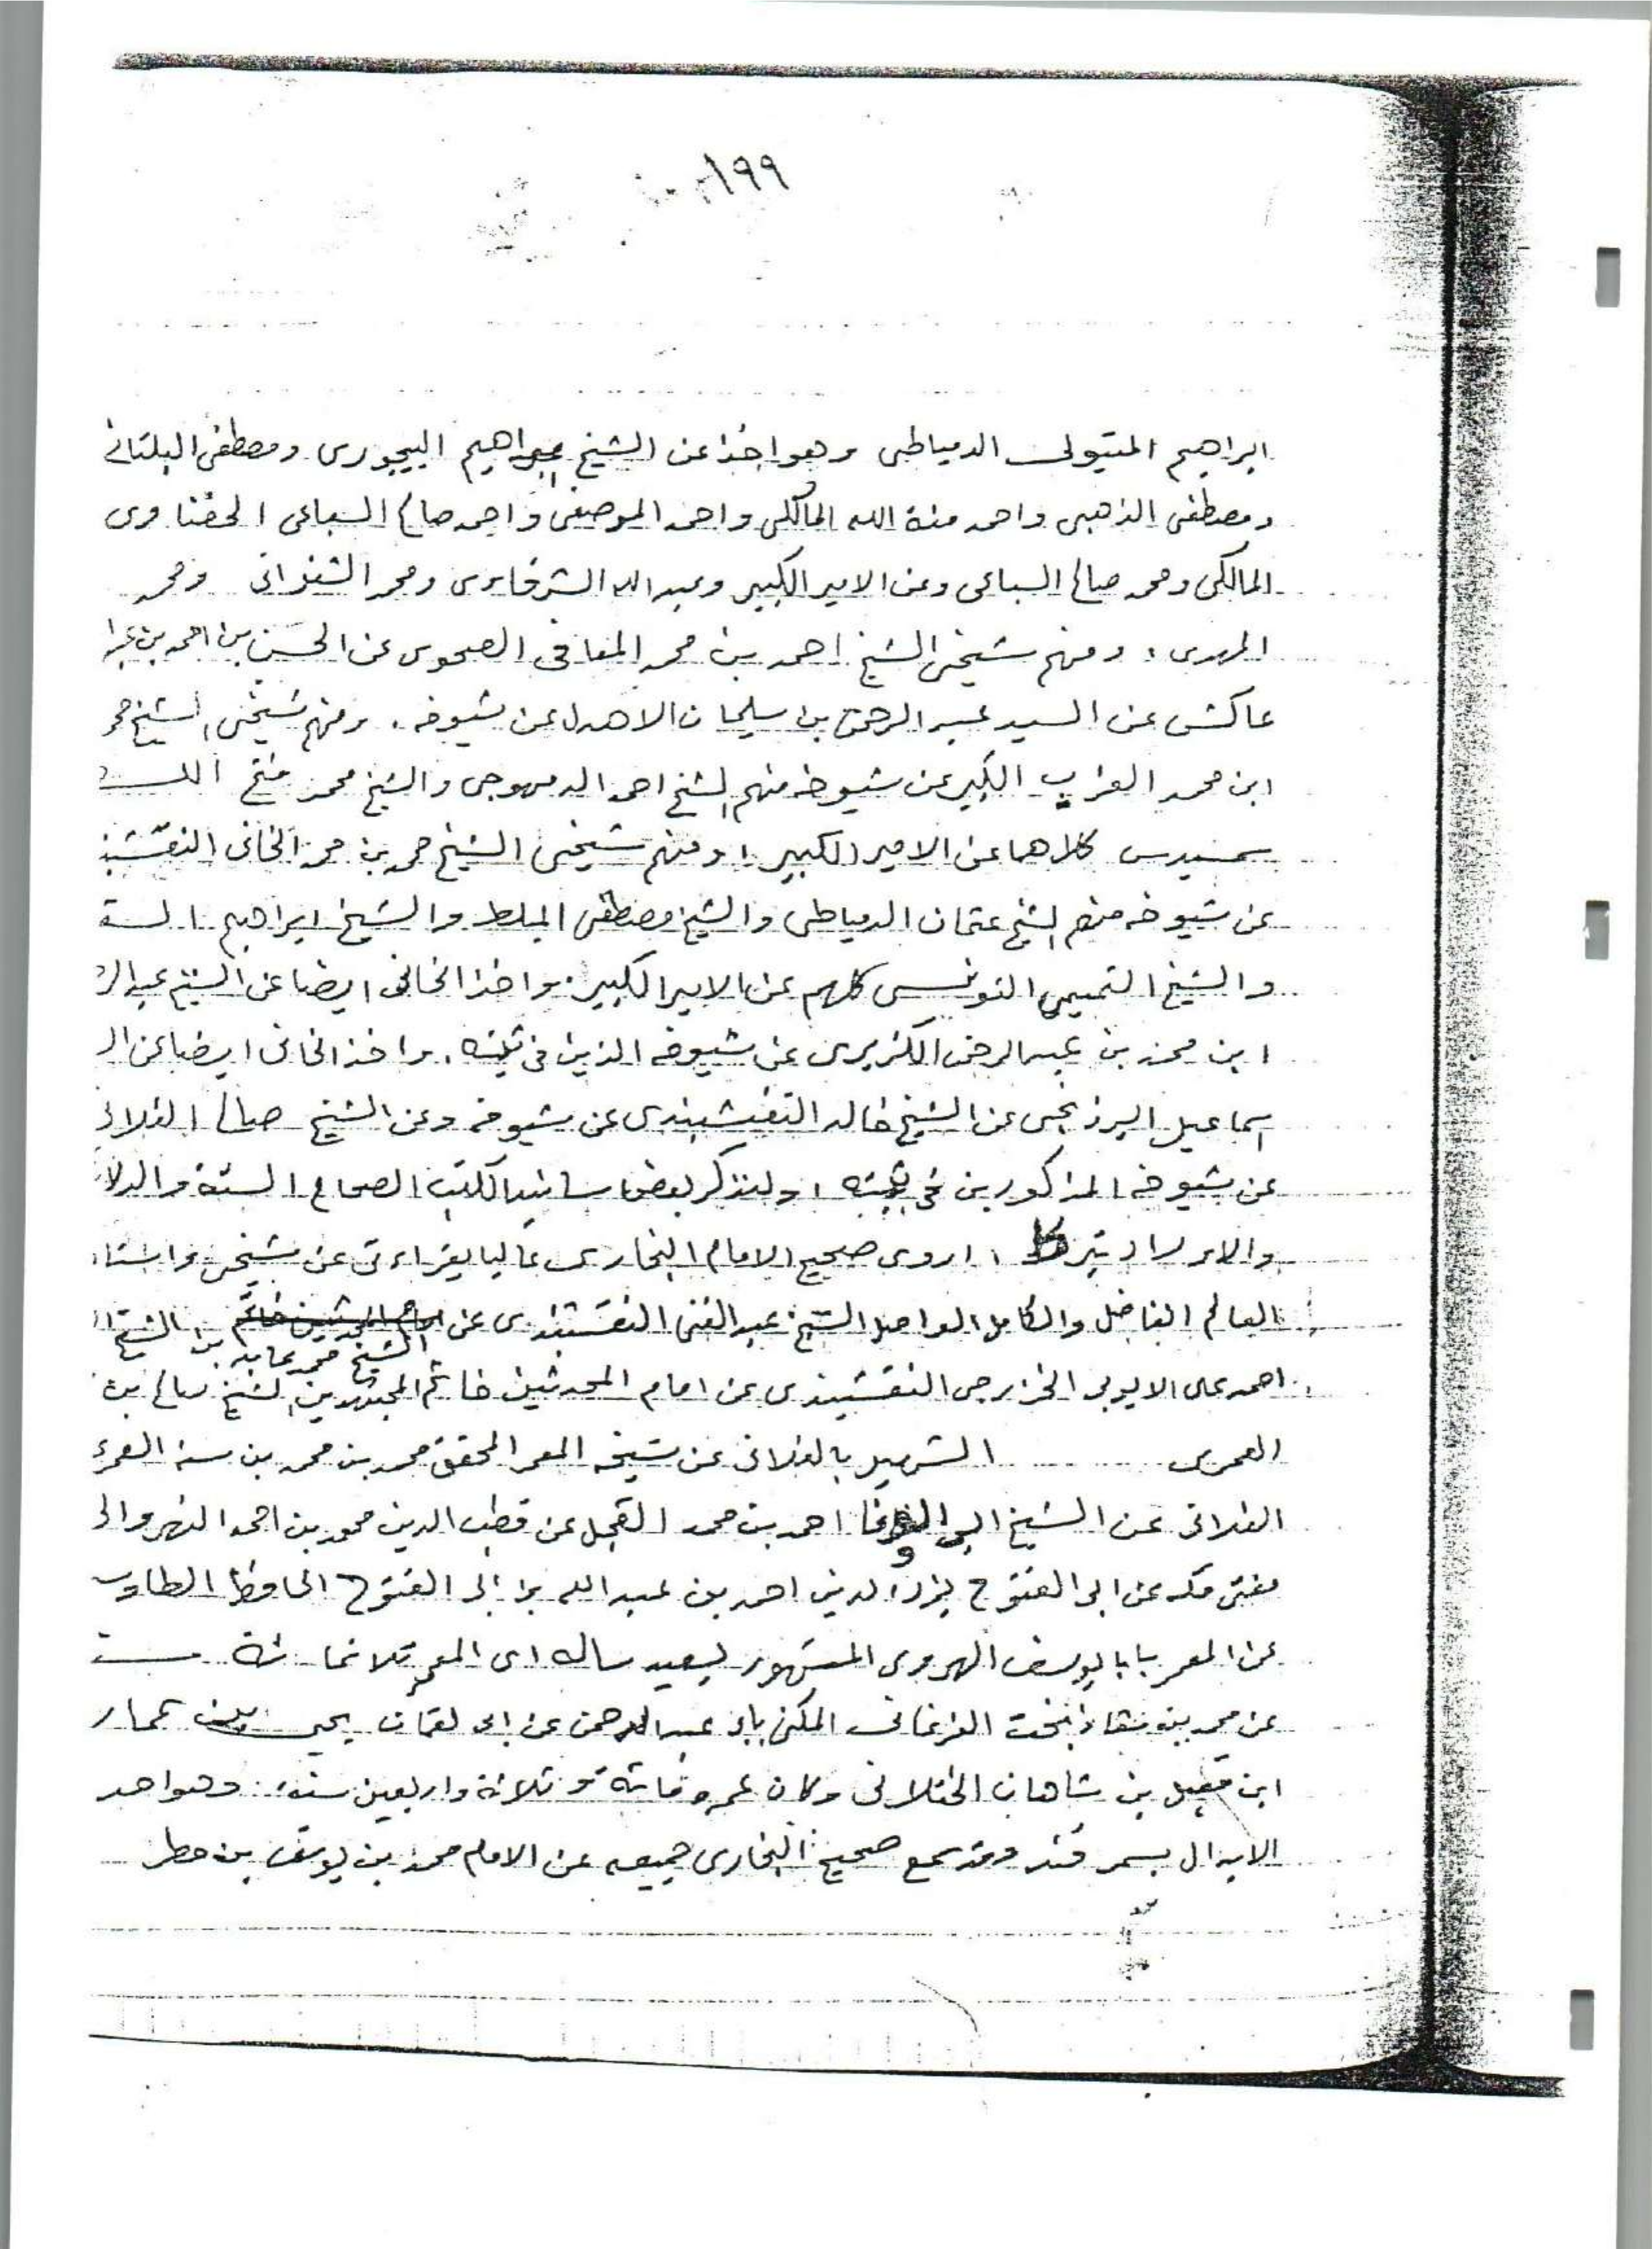 ١٩٩
ابراهيم المتيولى الدمياطى وهو اخذ عن الشيخ ابراهيم البيجورى ومصطفى البلتانى
ومصطفى الذهبى واحمد منة الله المالكى واحمد المرصفى واحمد صالح السباعى الحفناوى
المالكى ومحمد صالح السباعى وعن الامير الكبير وعبد الله الشرقاوى ومحمد الشنوانى ومحمد
المهدى ، ومنهم شيخى الشيخ احمد بن محمد المعافى الضحوى عن الحسن بن احمد بن
عاكش عن السيد عبد الرحمن بن سليمان الاهدل عن شيوخه . ومنهم شيخى الشيخ محمد
ابن محمد العزب الكبير عن شيوخه منهم الشيخ احمد الدمهوجى والشيخ محمد فتح الله
سمديس كلاهما عن الامير الكبير ، ومنهم شيخى الشيخ محمد بن محمد الخانى النقشبند
عن شيوخه منهم الشيخ عثمان الدمياطى والشيخ مصطفى المبلط والشيخ ابراهيم السق
والشيخ التميمى التونسى كلهم عن الامير الكبير . واخذ الخانى ايضا عن الشيخ عبد الر
ابن محمد بن عبد الرحمن الكزبرى عن شيوخه الذين فى ثبته . واخذ الخانى ايضا عن ال
اسماعيل البرزنجى عن الشيخ خالد النقشبندى عن شيوخه وعن الشيخ صالح الفلانى
عن شيوخه المذكورين فى ثبته ، ولنذكر بعض اسانيد الكتب الصحاح الستة والدلا
والاوراد تبركا ، اروى صحيح الامام البخارى عاليا بقراءتى عن شيخى واستا
العالم الفاضل والكامل الواصل الشيخ عبد الغنى النقشبندى عن الشيخ محمد عابد بن الشيخ
احمد على الايوبى الخزرجى النقشبندى عن امام المحدثين خاتم المجتهدين الشيخ صالح بن
العمرى الشهير بالفلانى عن شيخه المعمر المحقق محمد بن محمد بن سنة العمرى
الفلانى عن الشيخ ابى الوفا احمد بن محمد العجل عن قطب الدين محمد بن احمد النهروالى
مفتى مكه عن ابى الفتوح نور الدين احمد بن عبد الله بن ابى الفتوح الحافظ الطاوسى
عن المعمر بابا يوسف الهروى المشهور بسعيد ساله اى المعمر ثلاثمائة سنة
عن محمد بن شاذ بخت الفرغانى المكنى بابى عبد الرحمن عن ابى لقمان يحيى بن عمار
ابن مقبل بن شاهان الختلانى وكان عمره مائة وثلاثة واربعين سنة . وهو احد
الابدال بسمرقند وقد سمع صحيح البخارى جميعه عن الامام محمد بن يوسف بن مطر